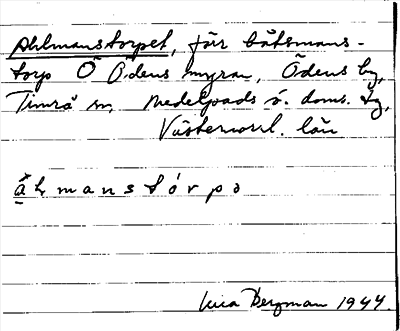 Ahlmanstorpet, förr båtsmans-
torp Ö Ödens myran, Ödens by,
Timrå sn, Medelpads ö. doms. tg,
Västernorrl. län
ălmanstórpə
Bergman 1944.